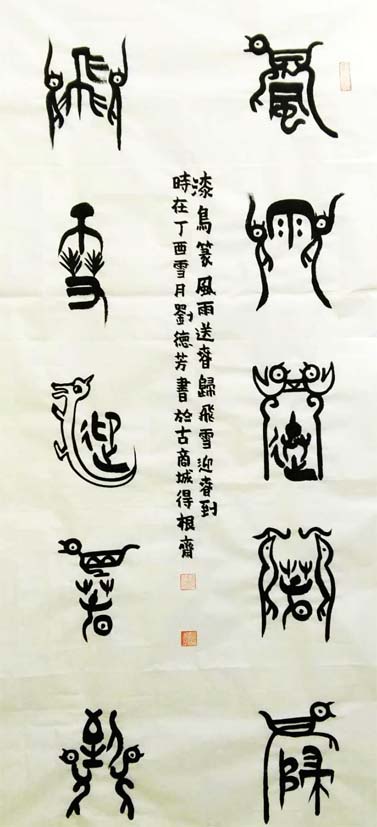 風雨送春歸
飛雪迎春到
漆鳥篆風雨送春歸飛雪迎春到
時在丁酉雪月劉德芳書於古商城得根齋